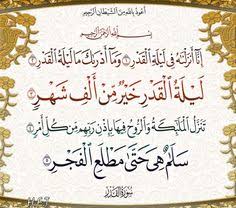 أعوذ بالله من الشيطان الرجيم
بسم الله الرحمن الرحيم
إِنَّا أَنزَلْنَاهُ فِي لَيْلَةِ الْقَدْرِ ۝ وَمَا أَدْرَاكَ مَا لَيْلَةُ الْقَدْرِ ۝
لَيْلَةُ الْقَدْرِ خَيْرٌ مِّنْ أَلْفِ شَهْرٍ ۝
تَنَزَّلُ الْمَلَائِكَةُ وَالرُّوحُ فِيهَا بِإِذْنِ رَبِّهِم مِّن كُلِّ أَمْرٍ ۝
سَلَامٌ هِيَ حَتَّىٰ مَطْلَعِ الْفَجْرِ ۝
سورة القدر